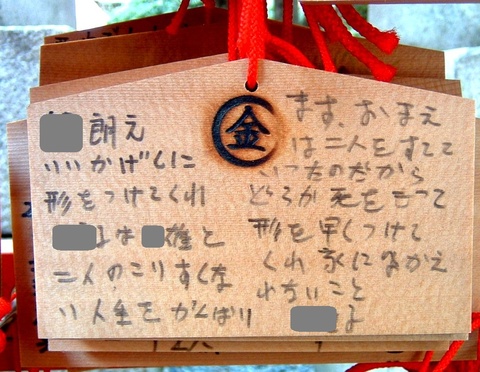 金
朗え
いいかげんに
形をつけてくれ
は 雄と
二人のこりすくな
い人生をがんばり
ます、おまえ
は二人をすてて
いったのだから
死をもって
形を早くつけて
くれ 家に かえ
れないこと